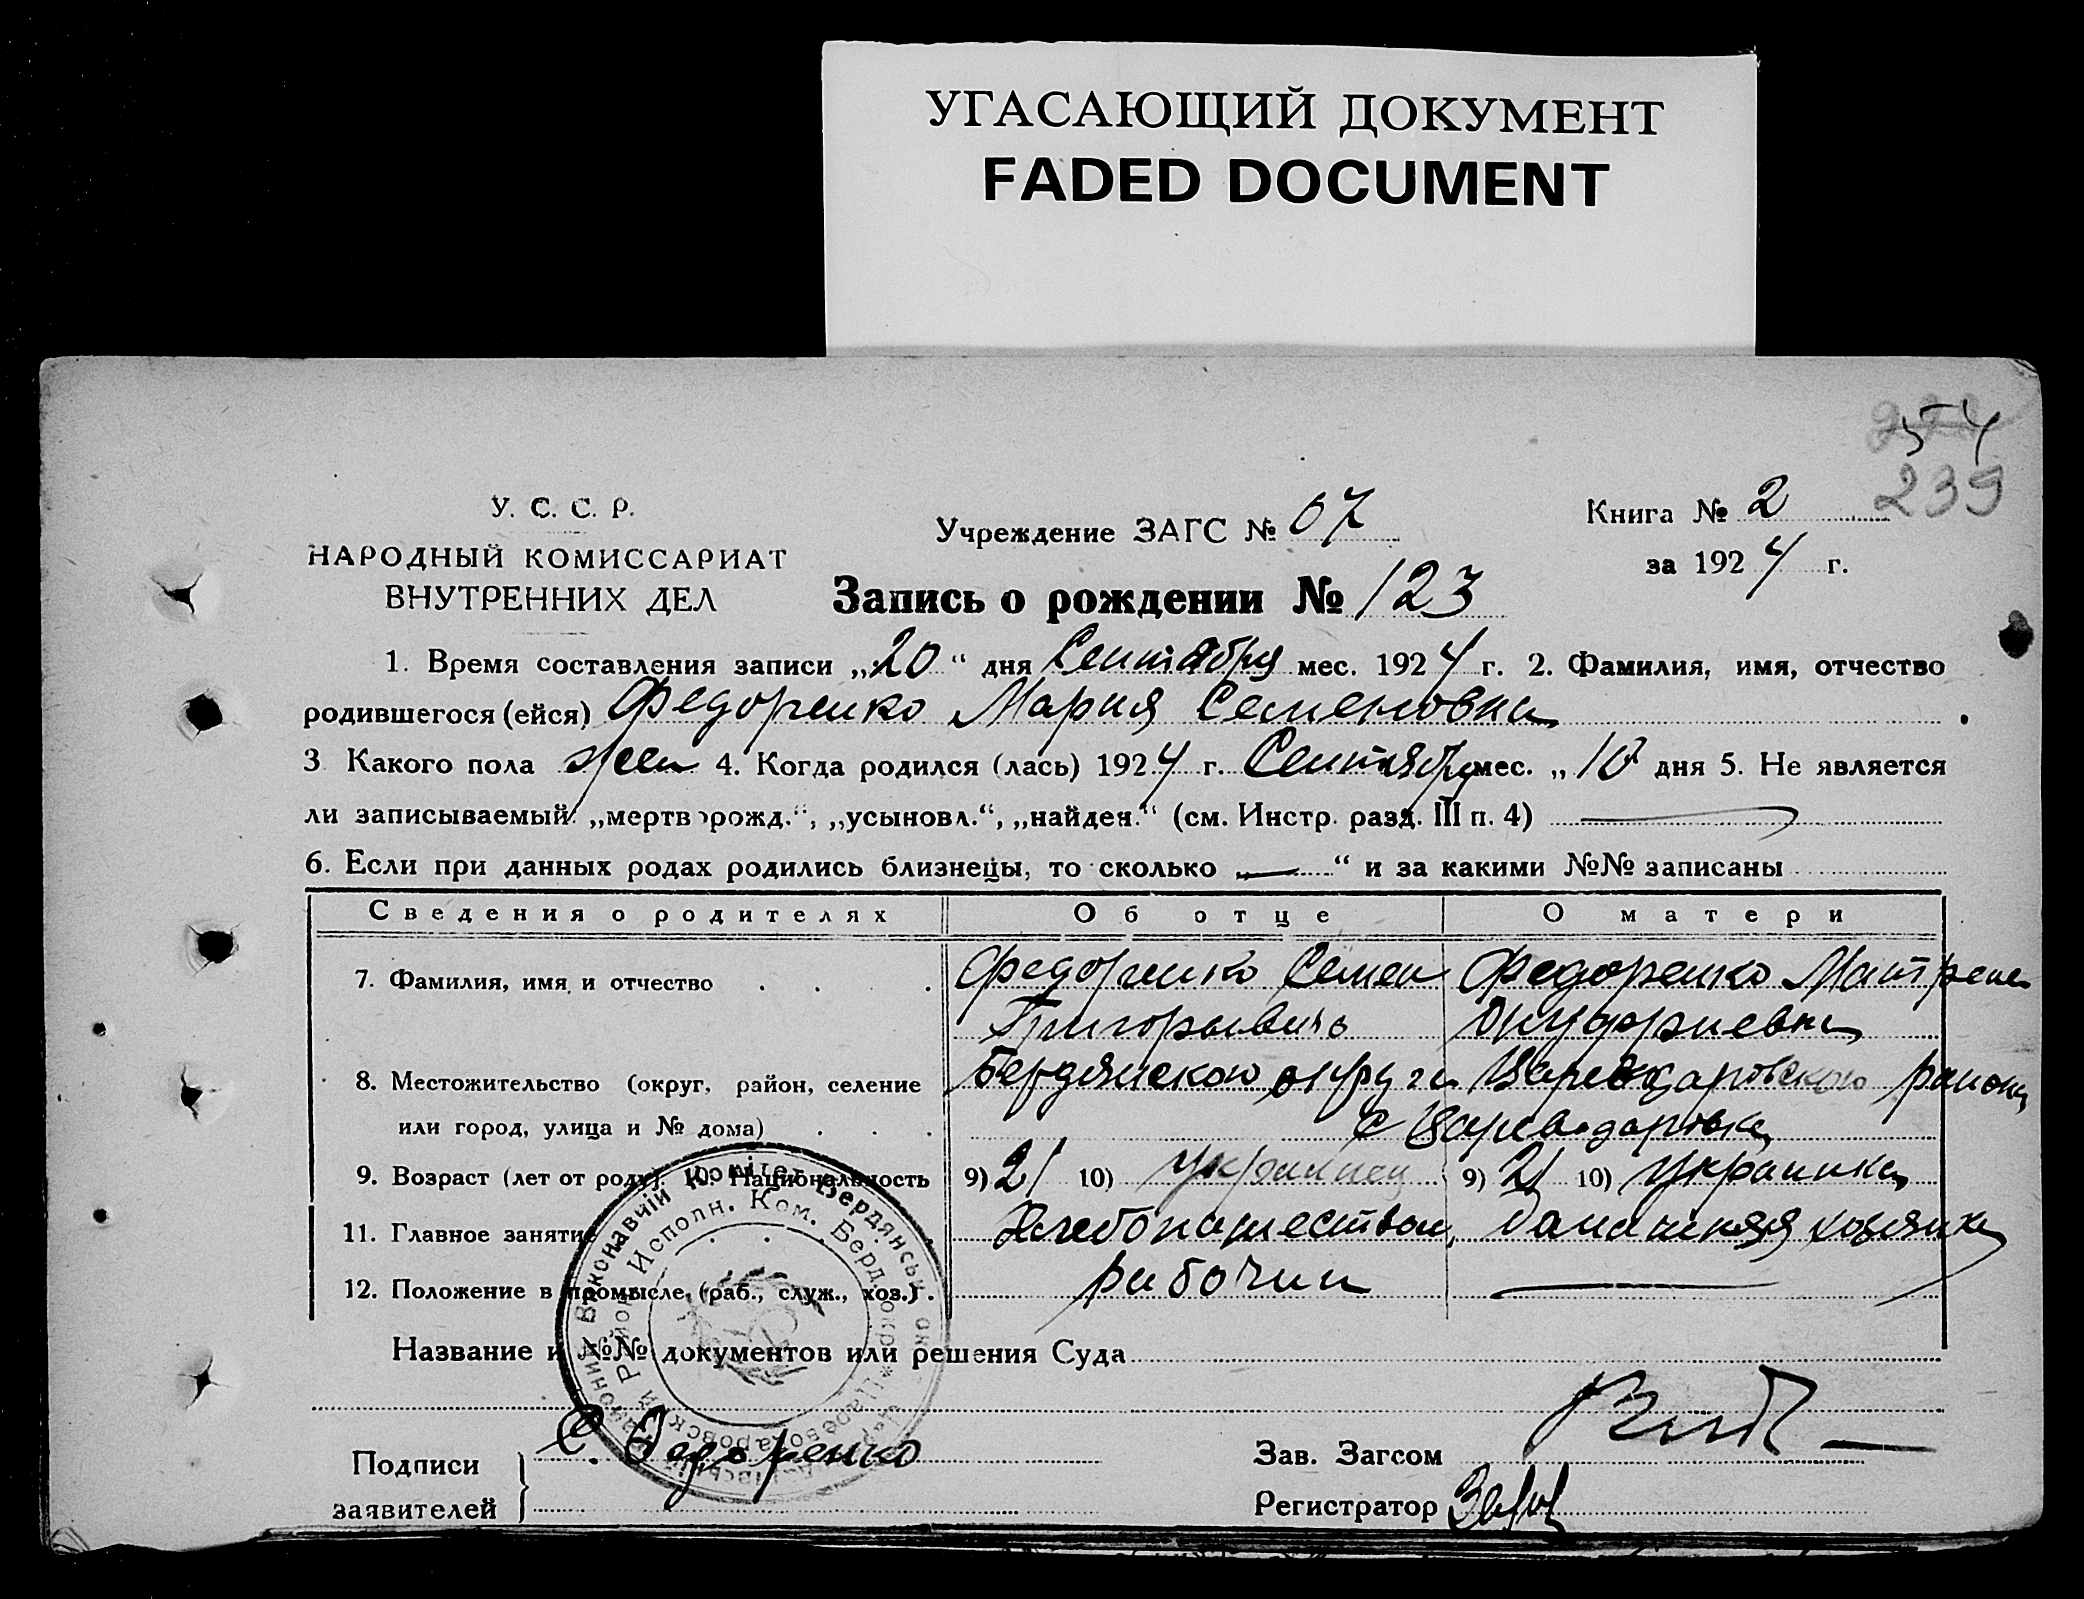 УГАСАЮЩИЙ ДОКУМЕНТ
FADED DOCUMENT
54
239
У. С. С. Р.
НАРОДНЫЙ КОМИССАРИАТ
ВНУТРЕННИХ ДЕЛ
Учреждение ЗАГС № 07
Книга № 2
за 1924 г.
Запись о рождении № 123
1. Время составления записи „20“ дня Сентября мес. 1924 г. 2. Фамилия, имя, отчество
родившегося (ейся) Федоренко Мария Семеновна
3 Какого пола жен 4. Когда родился (лась) 1924 г. Сентября мес. „10 дня 5. Не является
ли записываемый „мертворожд.“, „усыновл.“, „найден.“ (см. Инстр. разд. III п. 4)
6. Если при данных родах родились близнецы, то сколько „—“ и за какими №№ записаны
Сведения о родителях Об отце О матери
7. Фамилия, имя и отчество Федоренко Семен Федоренко Матрена
Григорьевичь Онуфриевна
8. Местожительство (округ, район, селение Бердянского округа Цареводаровского района
или город, улица и № дома) с Цареводаровка
9. Возраст (лет от роду). 10. Национальность 9) 21 10) Украинец 9) 21 10) Украинка
11. Главное занятие Хлебопашеством Домашняя хозяйка
12. Положение в промысле (раб., служ., хоз.) рабочии —
Название и №№ документов или решения Суда
Подписи
заявителей
С. Федоренко
Зав. Загсом
Регистратор
Виконавчій Комітет Бердянськ
Район Исполн. Ком. Берд. окр.